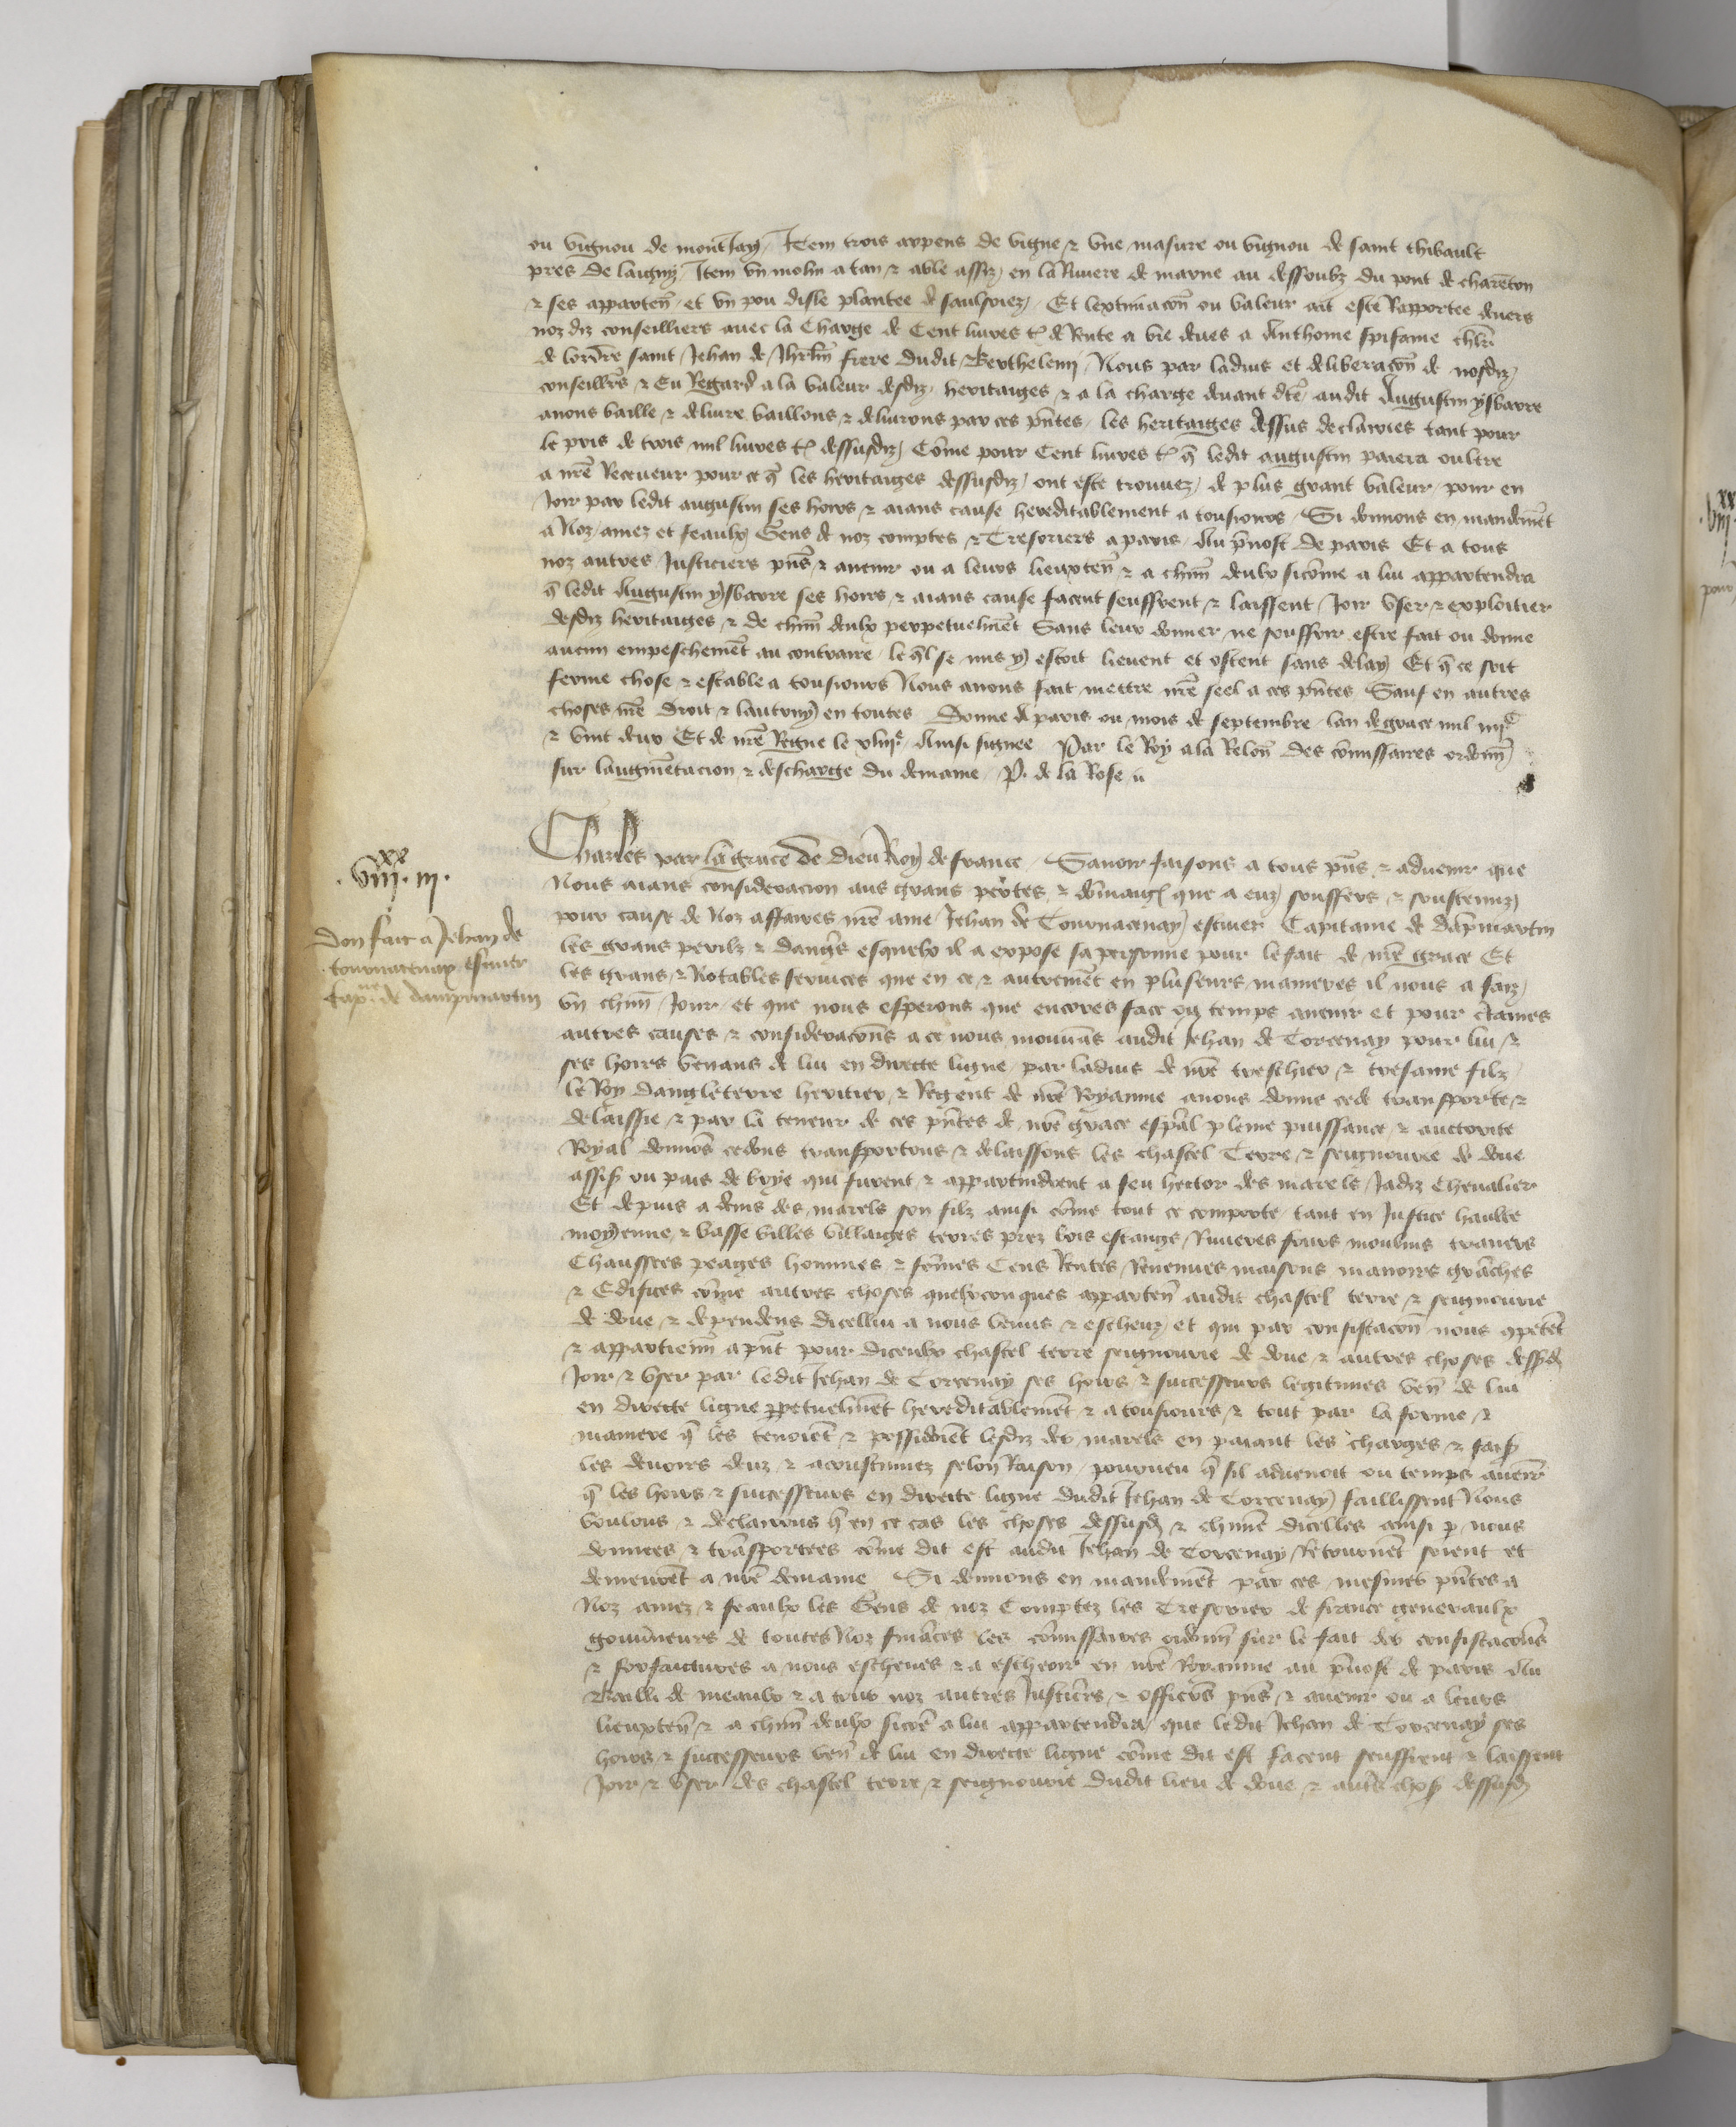 ou vignou de montjay Item trois arpens de vigne & vne masure ou vignou de saint thibault
pres de laigny Item vn molin a tan & a ble assiz en la Riuiere de marne au dessoubz du pont de charenton
& ses apparten et vn pou disle plantee de saulsoiez Et lextimacon ou valeur ait este Rapportee deuers
noz diz conseilliers auec la Charge de Cent liures t de Rente a vie deues a Anthoine spifame chlr
de lordre saint Jehan de Jhrlm frere dudit Berthelemi Nous par laduis et deliberacon de nosdiz
conseillrs & Eu Regard a la valeur desdiz heritaiges & a la charge deuant dte audit Augustin ysbarre
auons baille & deliure baillons & deliurons par ces pntes les heritaiges dessus declairies tant pour
le pris de trois mil liures t dessusdiz Come pour Cent liures t q ledit augustin paiera oultre
a nre Receueur pour ce q les heritaiges dessusdiz ont este trouuez de plus grant valeur pour en
Joir par ledit augustin ses hoirs & aians cause hereditablement a tousiours Si donnons en mandemet
a Noz amez et feaulx Gens de noz comptes & Tresoriers a paris Au puost de paris Et a tous
noz autres Justiciers pns & auenir ou a leurs lieuxten & a chun deulx sicome a lui appartendra
q ledit Augustin ysbarre ses hoirs & aians cause facent seuffrent & laissent Joir vser & exploitier
desdiz heritaiges & de chun deulx perpetuelmet Sans leur donner ne souffrir estre fait ou donne
aucun empeschemet au contraire leql se mis y estoit lieuent et ostent sans delay Et q ce soit
ferme chose & estable a tousiours Nous auons fait mettre nre seel a ces pntes Sauf en autres
choses nre droit & lautruy en toutes Donne a paris ou mois de septembre lan de grace mil iiijc
& vint deux Et de nre Regne le xliije Ainsi signee Par le Roy a la Relon des comissaires ordonn
sur laugmetacion & descharge du demaine P. de la Rose
.viijxx.iij.
Don fait a Jehan de
tournacenay escuier
Capne de dampmartin
Charles par la grace de dieu Roy de france Sauoir faisons a tous pns & aduenir que
Nous aians consideracion aus grans pertes & domaig que a euz souffers & soustenuz
pour cause de Noz affaires nre ame Jehan de Tournacenay escuier Capitaine de dapmartin
les grans perilz & dangs esquelx il a expose sa personne pour le fait de nre grace Et
les grans & Notables seruices que en ce & autremet en pluseurs manieres il nous a faiz
vn chun Jour et que nous esperons que encores face ou temps auenir et pour ctaines
autres causes & consideracons a ce nous mouuas audit Jehan de Torcenay pour lui &
ses hoirs venans de lui en directe ligne par laduis de nre treschier & tresame filz
le Roy dangleterre heritier & Regent de nre Royaume auons donne cede transporte &
delaissie & par la teneur de ces pntes de nre grace espal pleine puissance & auctorite
Royal donnos cedons transportons & delaissons les chastel Terre & seignourie de doue
assis ou pais de brye qui furent & appartindrent a feu hector des marels Jadiz Cheualier
Et depuis a denis des marels son filz ainsi come tout ce comporte tant en Justice haulte
moyenne & basse villes villaiges terres prez bois estangs Riuieres fours moulins trauers
Chaussees peages hommes & femes Cens Rentes Reuenues maisons manoirs graches
& Edifices come autres choses quelxconques apparten audit chastel terre & seignourie
de doue & dependens dicellui a nous venus & escheuz et qui par confiscacon nous opetet
& appartienn apnt pour diceulx chastel terre seignourie de doue & autres choses dessusd
Joir & vser par ledit Jehan de Torcenay ses hoirs & successeurs legitimes ven de lui
en directe ligne ppetuelmet hereditablemet & a tousiours & tout par la forme &
maniere q les tenoiet & possidoiet lesdiz des marels en paiant les charges & fais
les deuoirs deuz & acoustumez selon Raison pourueu q sil aduenoit ou temps auenir
q les hoirs & successeurs en directe ligne dudit Jehan de Torcenay faillissent Nous
voulons & declairons q en ce cas les choses dessusd & chune dicelles ainsi p nous
donnees & trasportees come dit est audit Jehan de Torcenay Retournet soient et
demeuret a nre demaine Si donnons en mandemet par ces mesmes pntes a
Noz amez & feaulx les Gens de noz Comptez les Tresorier de france generaulx
gouuneurs de toutes Noz finaces les comissaires ordonn sur le fait des confiscacons
& forfaictures a nous escheues & a escheoir en nre Royaume au puost de paris Au
Bailli de meaulx & a tous noz autres Justicrs & officrs pns & auenir ou a leurs
lieuxten & a chun deulx sicoe a lui appartendra que ledit Jehan de Torcenay ses
hoirs & successeurs ven de lui en directe ligne come dit est facent seuffrent & laissent
Joir & vser des chastel terre & seignourie dudit lieu de doue & autrs chos dessusd